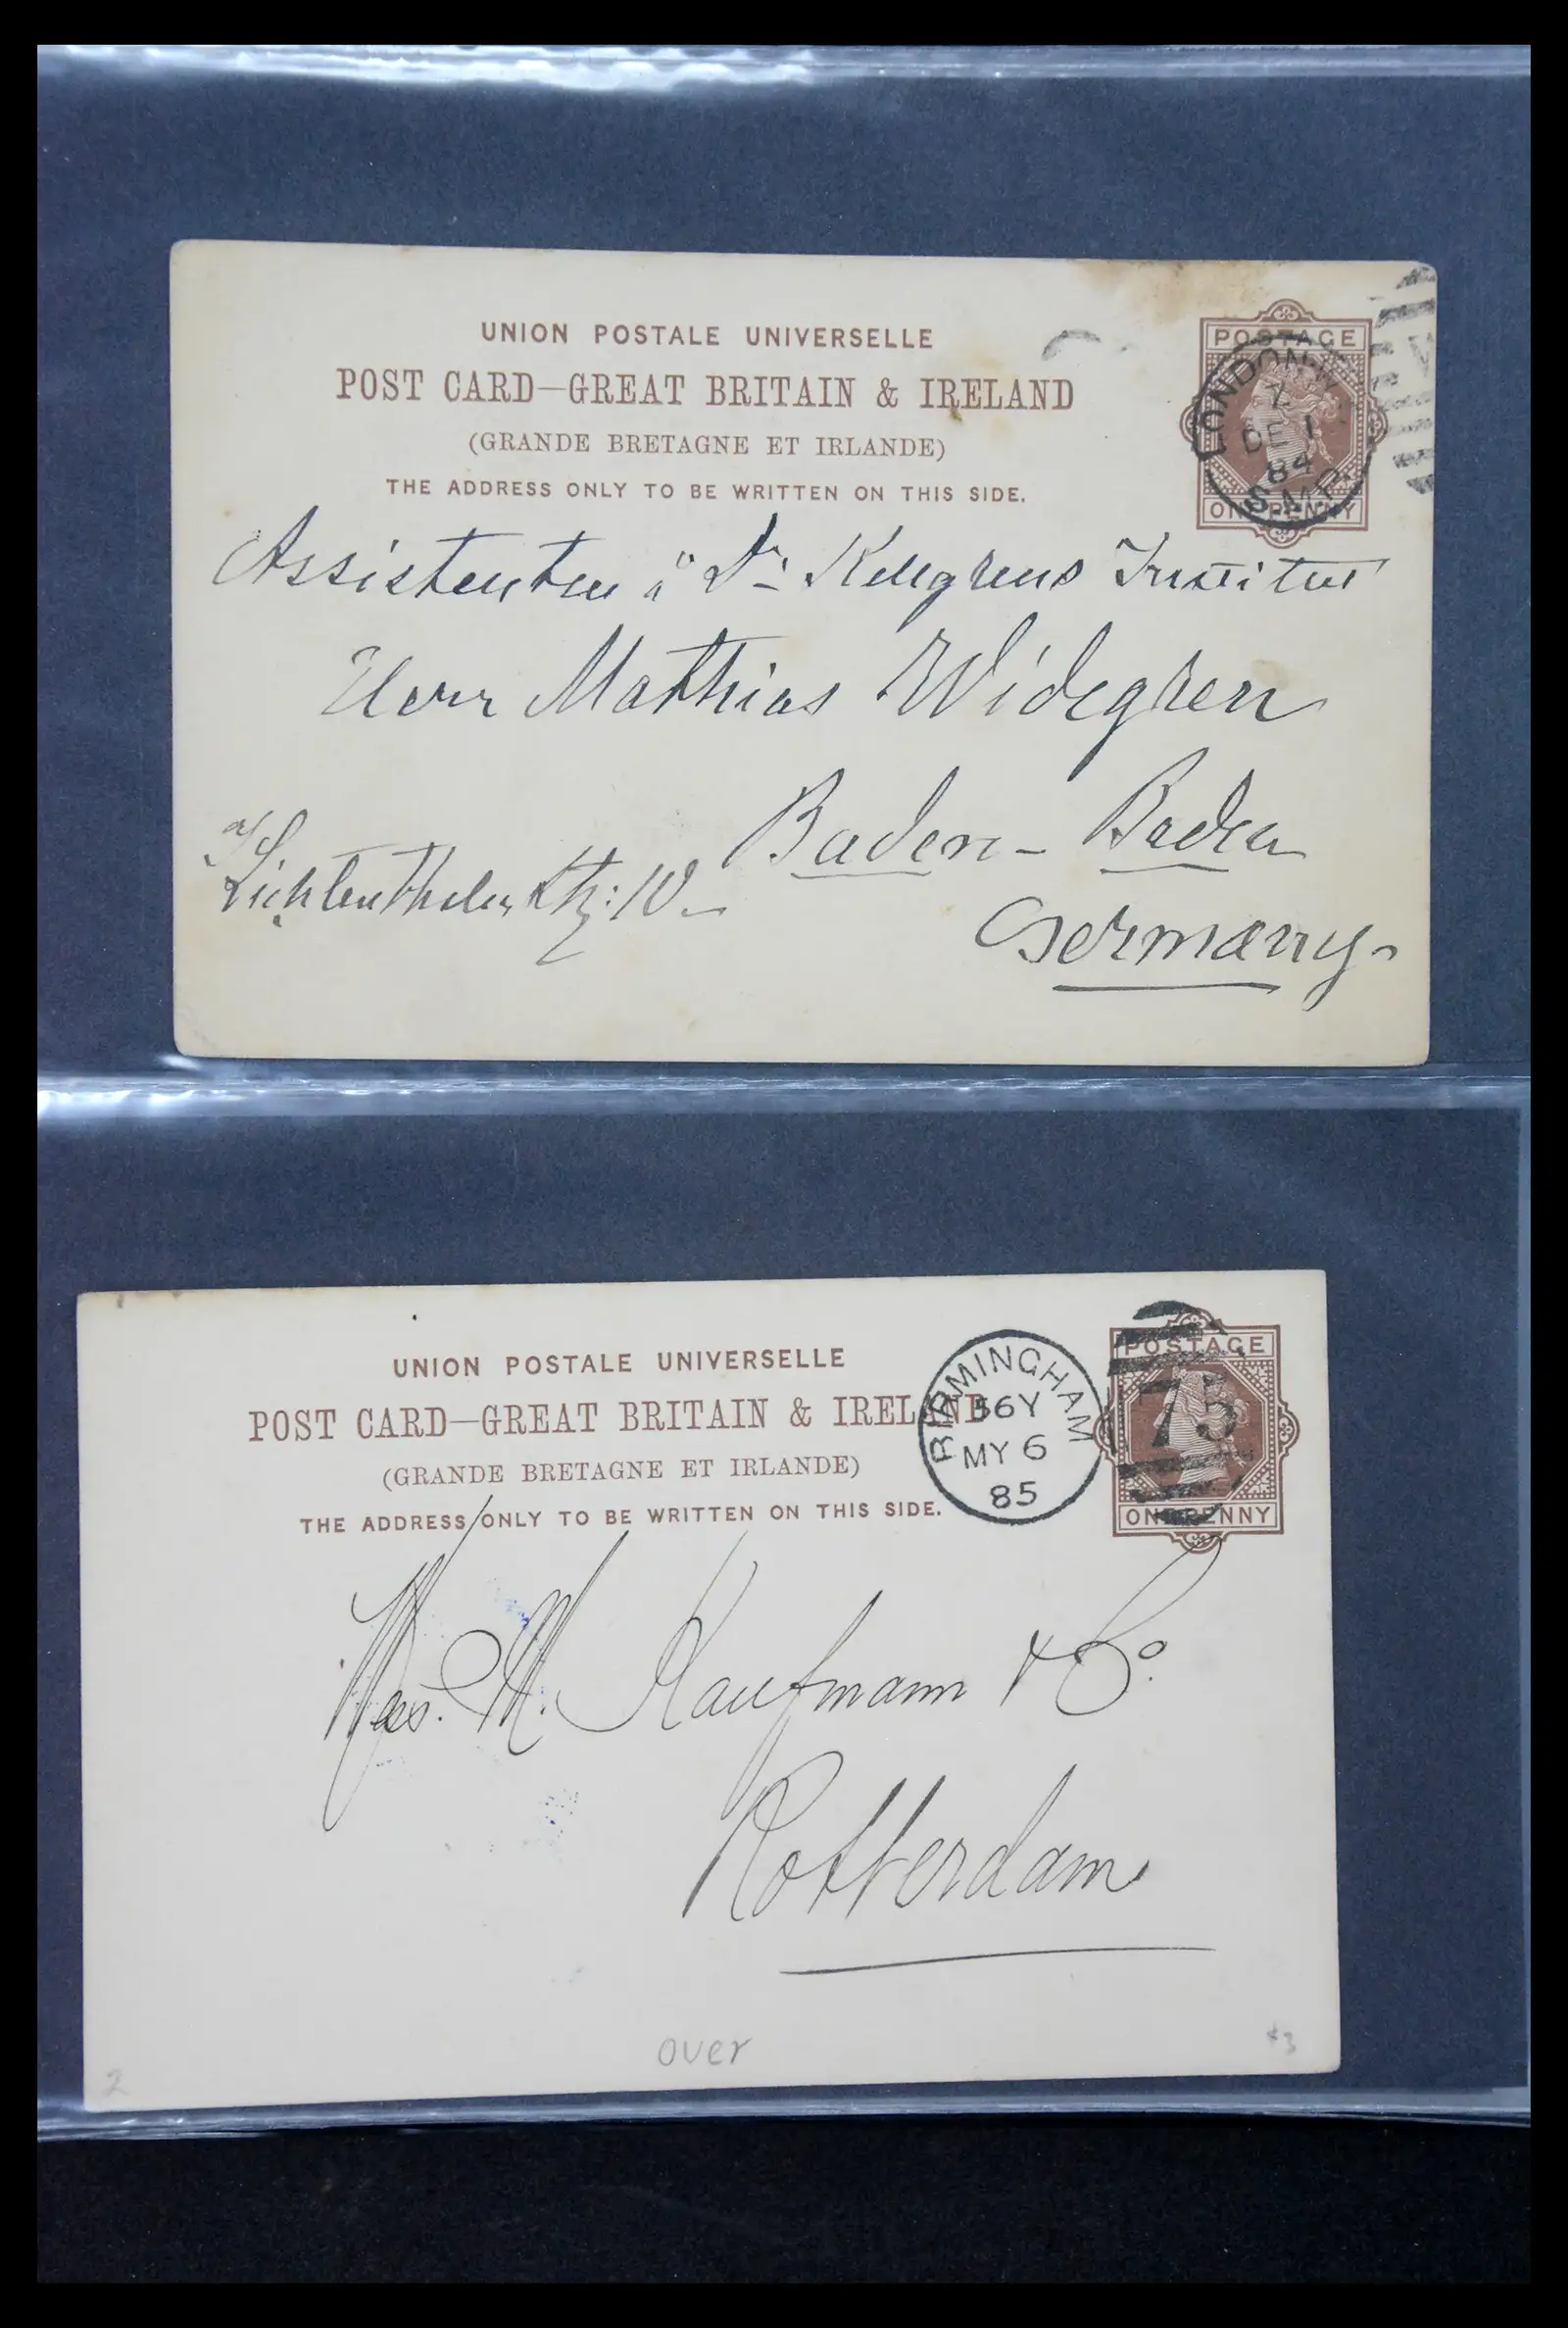 UNION POSTALE UNIVERSELLE
POST CARD—GREAT BRITAIN & IRELAND
(GRANDE BRETAGNE ET IRLANDE)
THE ADDRESS ONLY TO BE WRITTEN ON THIS SIDE.
POSTAGE
ONE PENNY
LONDON·W
Z
DE 1
84
Assistenten i Dr Kellgrens Institut
Herr Mathias Widegren
Baden-Baden
Lichtenthaler Str: 10
Germany
UNION POSTALE UNIVERSELLE
POST CARD—GREAT BRITAIN & IRELAND
(GRANDE BRETAGNE ET IRLANDE)
THE ADDRESS ONLY TO BE WRITTEN ON THIS SIDE.
BIRMINGHAM
56Y
MY 6
85
75
POSTAGE
ONE PENNY
M. Kaufmann & Co.
Rotterdam
over
2